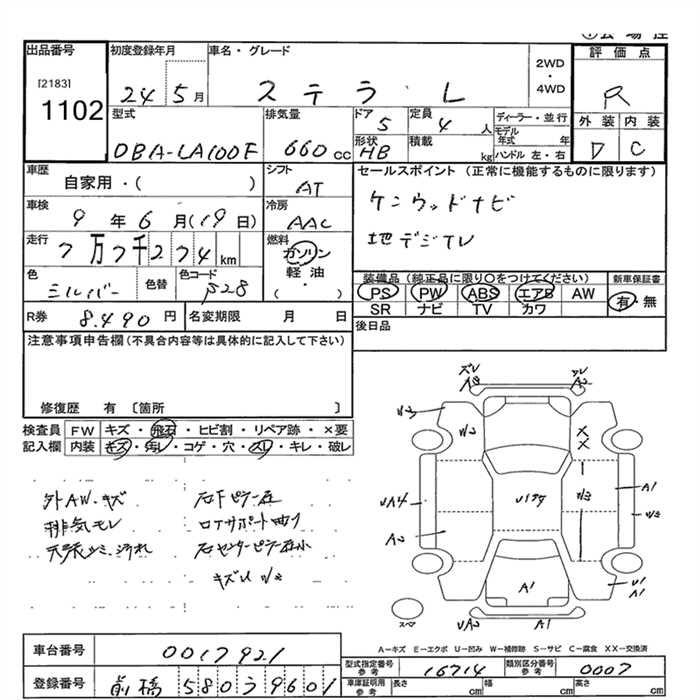 会場控
出品番号
[2183]
1102
初度登録年月
24 5月
車名・グレード
ステラ L
2WD
・
4WD
評価点
R
外装 内装
D C
型式
DBA-LA100F
排気量
660 cc
ドア
5
定員
4 人
形状
HB
積載
kg
ディーラー・並行
モデル年式 年
ハンドル 左・右
車歴
自家用・( )
シフト
AT
車検
9 年 6 月(19日)
冷房
AAC
走行
7万7千274km
燃料
ガソリン
軽油
( )
色
シルバー
色替
色コード
S28
R券 8.490 円
名変期限 月 日
セールスポイント (正常に機能するものに限ります)
ケンウッドナビ
地デジTV
装備品 (純正品に限り○をつけてください)
PS PW ABS エアB AW
SR ナビ TV カワ
新車保証書
有・無
後日品
注意事項申告欄(不具合内容等は具体的に記入して下さい)
修復歴 有 〔箇所 〕
検査員 FW キズ・飛石・ヒビ割・リペア跡・×要
記入欄 内装 キズ・汚レ・コゲ・穴・スレ・キレ・破レ
外AW.キズ
排気モレ
天張シミ.汚れ
右Fピラー歪
ロアサポート曲り
右センターピラー歪小
キズU W2
ズレ
A2
W2
W2
UA4
A2
U17ケ
A1
W2
A1
W2
U1
A1
A1
UA2
スペア
A-キズ E-エクボ U-凹み W-補修跡 S-サビ C-腐食 XX-交換済
車台番号 0017921
登録番号 前橋 580 ろ 9601
型式指定番号
参考
16714
類別区分番号
参考
0007
車庫証明用
参考
長さ cm 幅 cm cm